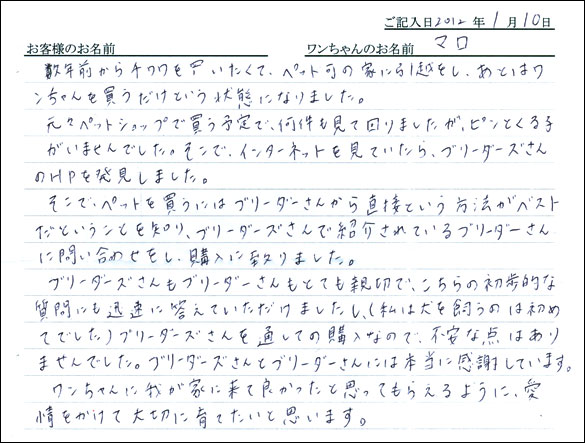 ご記入日2012年1月10日
お客様のお名前 ワンちゃんのお名前 マロ
数年前からチワワを買いたくて、ペット可の家に引越をし、あとはワ
ンちゃんを買うだけという状態になりました。
元々ペットショップで買う予定で、何件も見て回りましたが、ピンとくる子
がいませんでした。そこで、インターネットを見ていたら、ブリーダーズさん
のHPを発見しました。
そこで、ペットを買うにはブリーダーさんから直接という方法がベスト
だということを知り、ブリーダーズさんで紹介されているブリーダーさん
に問い合わせをし、購入に致りました。
ブリーダーズさんもブリーダーさんもとても親切で、こちらの初歩的な
質問にも迅速に答えていただけましたし、(私は犬を飼うのは初め
てでした)ブリーダーズさんを通しての購入なので、不安な点はあり
ませんでした。ブリーダーズさんとブリーダーさんには本当に感謝しています。
ワンちゃんに我が家に来て良かったと思ってもらえるように、愛
情をかけて大切に育てたいと思います。